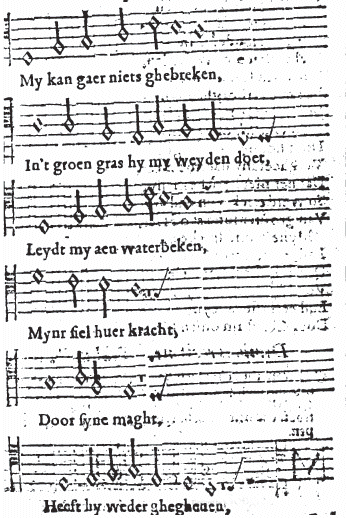 My kan gaer niets ghebreken,
In't groen gras hy my weyden doet,
Leydt my aen waterbeken,
Mynr siel huer kracht,
Door syne maght,
Heeft hy weder ghegheuen,